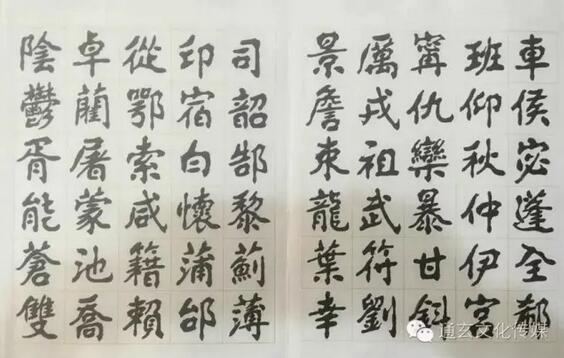 車侯宓蓬全郗
班仰秋仲伊宮
甯仇欒暴甘鈄
厲戎祖武符劉
景詹束龍葉幸
司韶郜黎薊薄
印宿白懷蒲邰
從鄂索咸籍賴
卓藺屠蒙池喬
陰鬱胥能蒼雙
通玄文化传媒